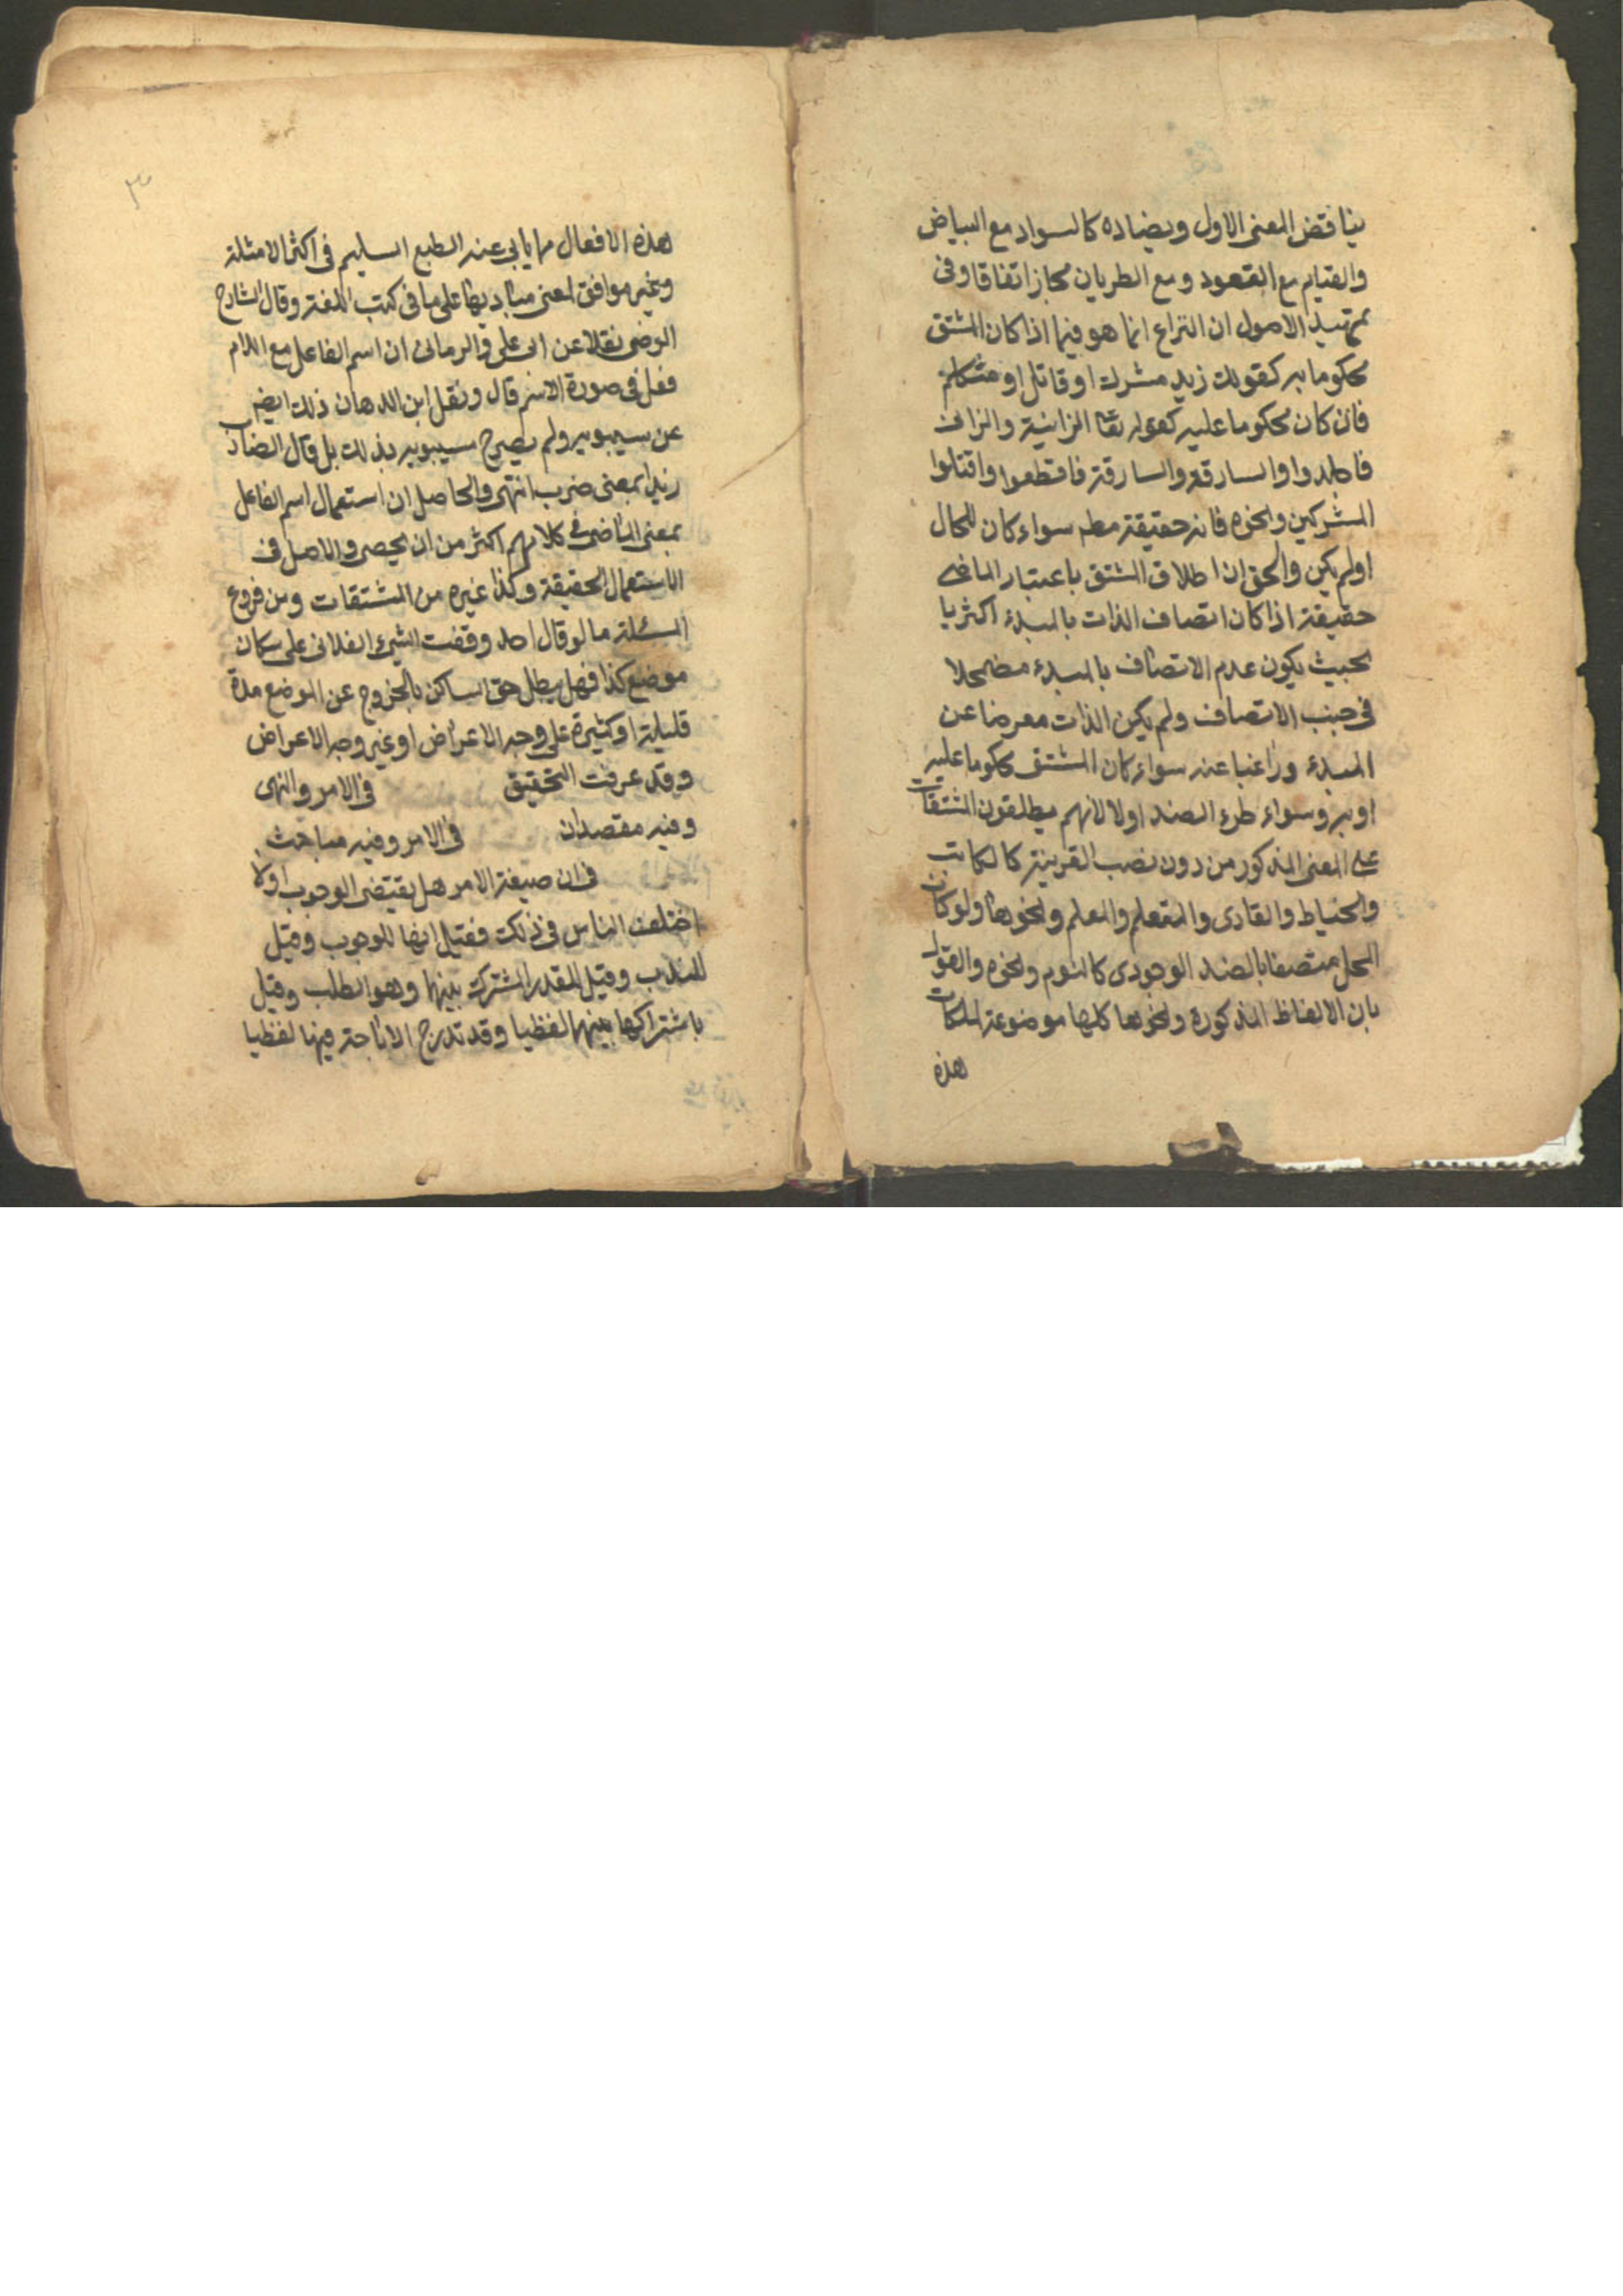 يناقض المعنى الاول ويضاده كالسواد مع البياض
والقيام مع القعود ومع الطريان مجاز اتفاقا وفى
تمهيد الاصول ان النزاع انما هو فيما اذا كان المشتق
محكوما به كقولك زيد مشرك او قاتل او متكلم
فان كان محكوما عليه كقوله تعا الزانية والزانى
فاجلدوا والسارق والسارقة فاقطعوا واقتلوا
المشركين ونحوه فانه حقيقة مطم سواء كان للحال
اولم يكن والحق ان اطلاق المشتق باعتبار الماضى
حقيقة اذا كان اتصاف الذات بالمبدء اكثريا
بحيث يكون عدم الاتصاف بالمبدء مضمحلا
فى جنب الاتصاف ولم يكن الذات معرضا عن
المبدء وراغبا عنه سواء كان المشتق محكوما عليه
او به وسواء طرء الضد اولا لانهم يطلقون المشتقات
على المعنى المذكور من دون نصب القرينة كالكاتب
والخياط والقارى والمتعلم والمعلم ونحوها ولو كان
المحل متصفا بالضد الوجودى كالنوم ونحوه والقول
بان الالفاظ المذكورة ونحوها كلها موضوعة لملكات
هذه
٣
هذه الافعال مما يابى عنه الطبع السليم فى اكثر الامثلة
وغير موافق لمعنى مباديها على ما فى كتب اللغة وقال الشارح
الرضى نقلا عن ابى على والرمانى ان اسم الفاعل مع اللام
فعل فى صورة الاسم قال ونقل ابن الدهان ذلك ايضم
عن سيبويه ولم يصرح سيبويه بذلك بل قال الضارب
زيدا بمعنى ضرب انتهى والحاصل ان استعمال اسم الفاعل
بمعنى الماضى فى كلامهم اكثر من ان يحصى والاصل فى
الاستعمال الحقيقة وكذا غيره من المشتقات ومن فروع
المسئلة ما لو قال احد وقفت الشىء الفلانى على سكان
موضع كذا فهل يبطل حق الساكن بالخروج عن الموضع مدة
قليلة او كثيرة على وجه الاعراض او غير وجه الاعراض
وقد عرفت التحقيق فى الامر والنهى
وفيه مقصدان فى الامر وفيه مباحث
فى ان صيغة الامر هل يقتضى الوجوب اولا
اختلف الناس فى ذلك فقيل انها للوجوب وقيل
للندب وقيل للقدر المشترك بينهما وهو الطلب وقيل
باشتراكها بينهما لفظيا وقد تدرج الاباحة فيها لفظيا